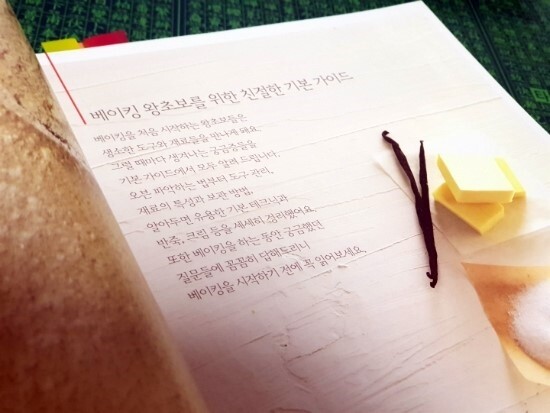 베이킹 왕초보를 위한 친절한 기본 가이드
베이킹을 처음 시작하는 왕초보들은
생소한 도구와 재료들을 만나게 돼요.
그럴 때마다 생겨나는 궁금증들을
기본 가이드에서 모두 알려 드립니다.
오븐 파악하는 법부터 도구 관리,
재료의 특성과 보관 방법,
알아두면 유용한 기본 테크닉과
반죽, 크림 등을 세세히 정리했어요.
또한 베이킹을 하는 동안 궁금했던
질문들에 꼼꼼히 답해드리니
베이킹을 시작하기 전에 꼭 읽어보세요.